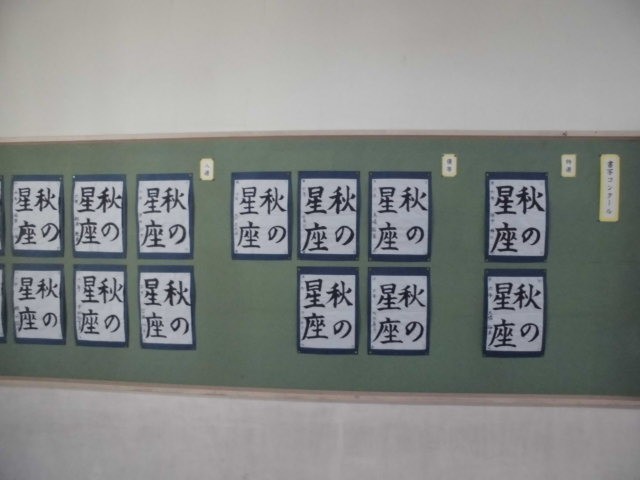 書写コンクール
特選
秋の
星座
秋の
星座
秋の
星座
秋の
星座
秋の
星座
秋の
星座
秋の
星座
入選
秋の
星座
秋の
星座
秋の
星座
秋の
星座
秋の
星座
秋の
星座